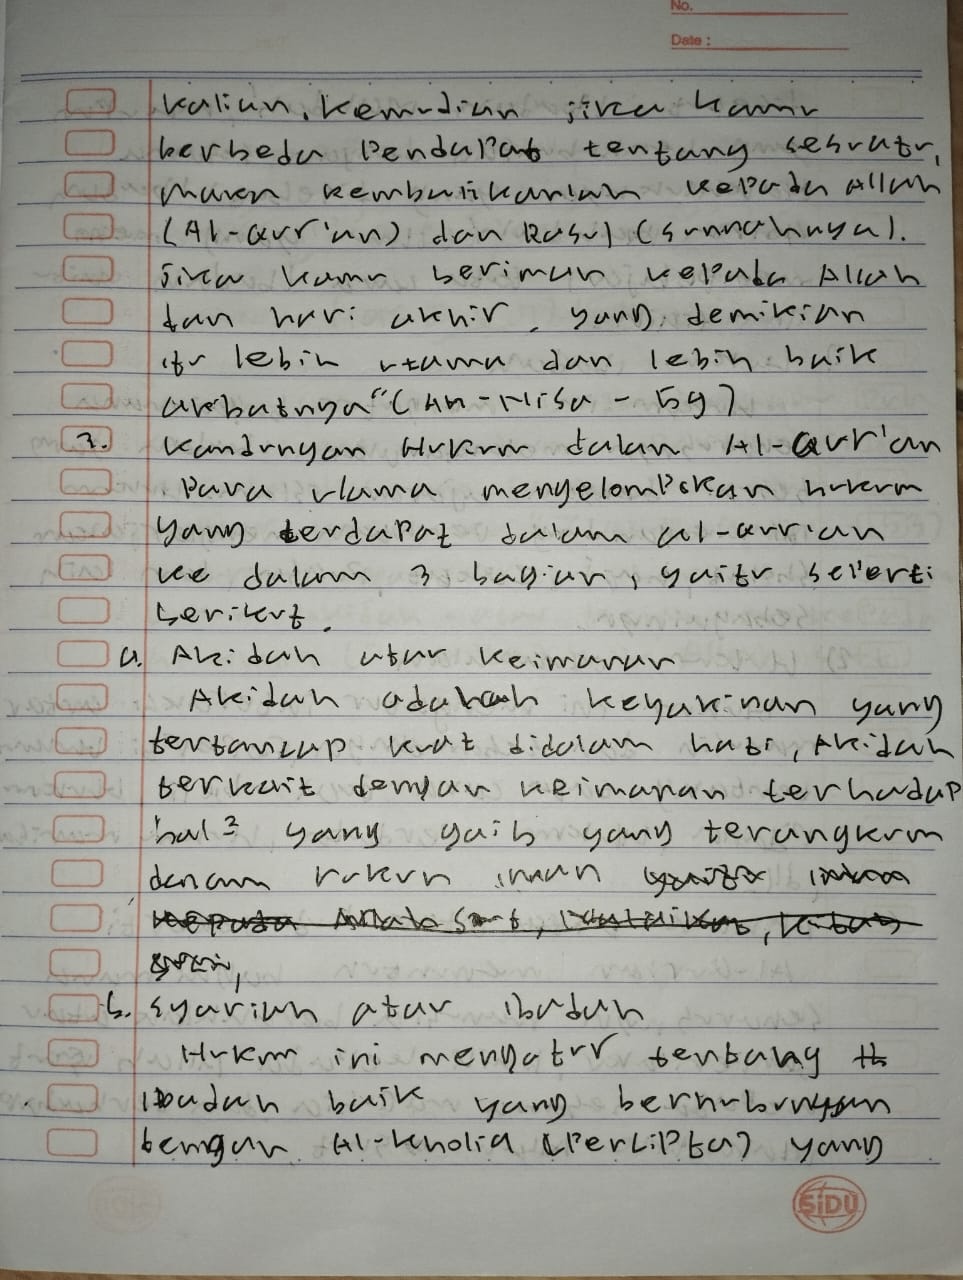 No.
Date :
kalian, kemudian jika kamu
berbeda Pendapat tentang sesuatu,
maka kembalikanlah kepada Allah
(Al-Qur'an) dan Rasul (sunnahnya).
Jika kamu beriman kepada Allah
dan hari akhir, yang demikian
itu lebih utama dan lebih baik
akibatnya" (An-Nisa - 59)
2. Kandungan Hukum dalam Al-Qur'an
Para ulama mengelompokan hukum
yang terdapat dalam al-qur'an
ke dalam 3 bagian, yaitu seperti
berikut.
a. Akidah atau keimanan
Akidah adalah keyakinan yang
tertancap kuat didalam hati, Akidah
terkait dengan keimanan terhadap
hal² yang gaib yang terangkum
dalam rukun iman
b. Syariah atau Ibadah
Hukum ini mengatur tentang
Ibadah baik yang berhubungan
dengan Al-Kholiq (Pencipta) yang
SiDU